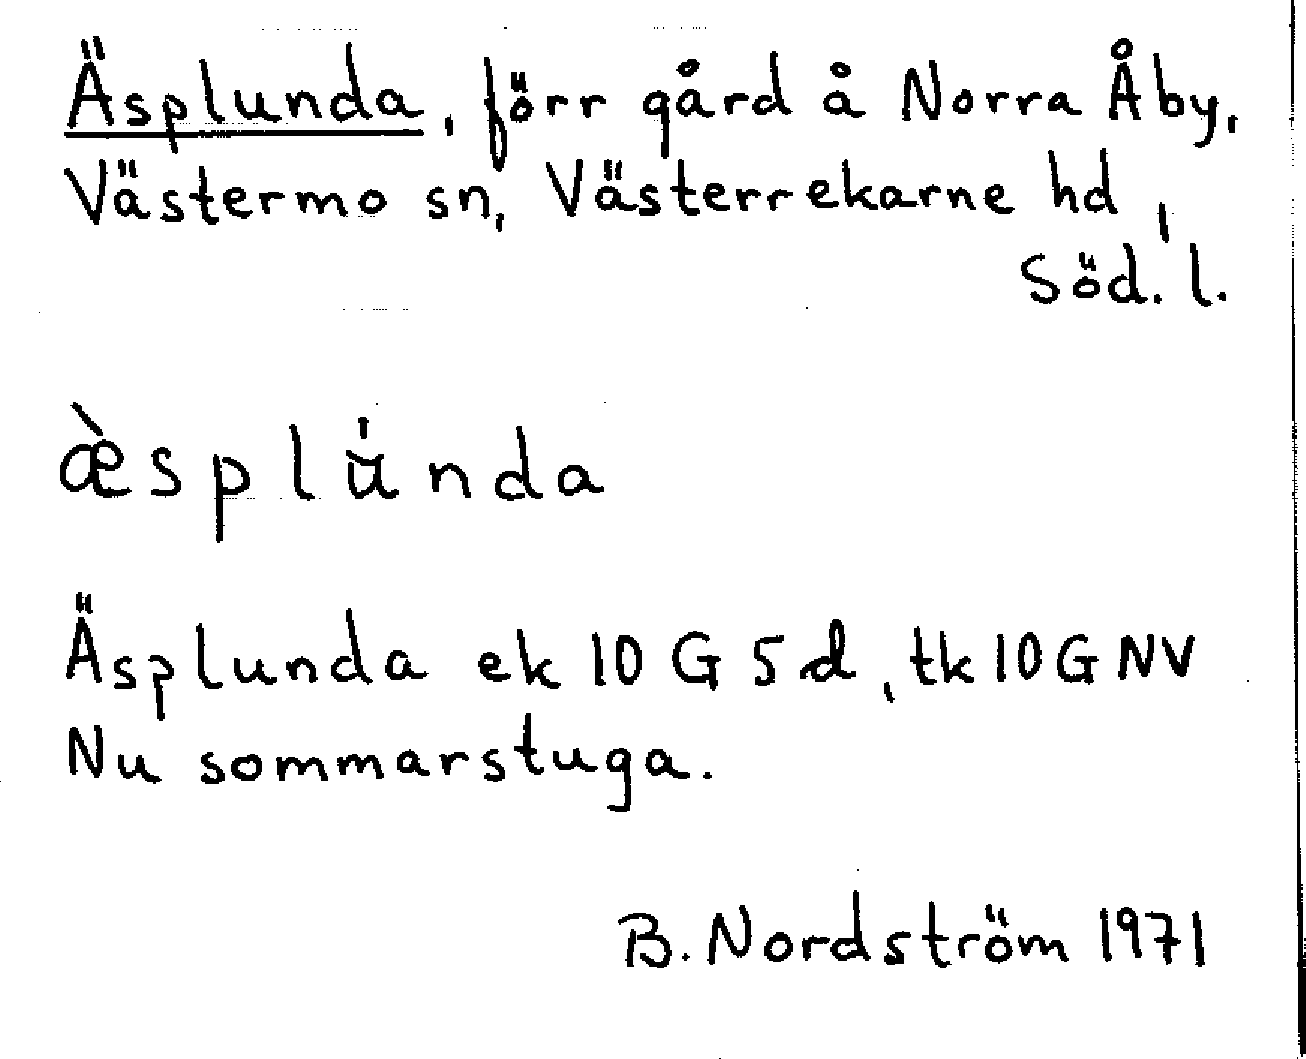 Äsplunda, förr gård å Norra Åby,
Västermo sn, Västerrekarne hd,
Söd. l.
æ̀splu̇̆nda
Äsplunda ek 10 G 5 d, tk 10 G NV
Nu sommarstuga.
B. Nordström 1971